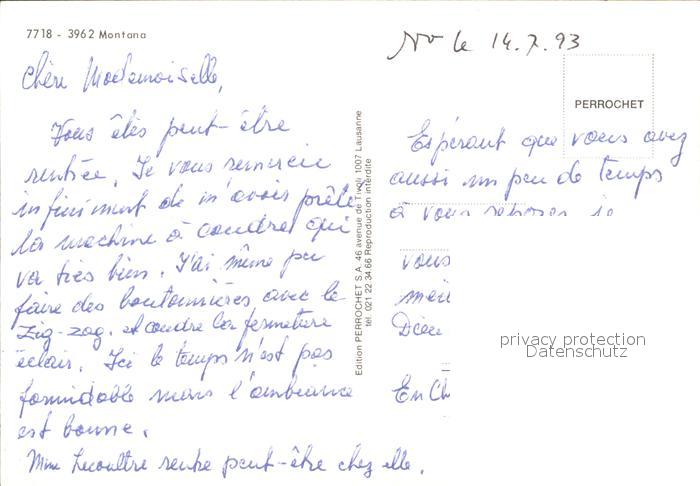 7718 - 3962 Montana
Chère Mademoiselle,
Vous êtes peut-être
rentrée. Je vous remercie
infiniment de m'avoir prêté
la machine à coudre qui
va très bien. J'ai même pu
faire des boutonnières avec le
zig-zag. et coudre la fermeture
éclair. Ici le temps n'est pas
formidable mais l'ambiance
est bonne.
Mme Lecoultre rentre peut-être chez elle.
Edition PERROCHET S.A. 46 avenue de Tivoli 1007 Lausanne
tél. 021 22 34 66 Reproduction interdite
le 14.7.93
PERROCHET
Espérant que vous avez
aussi un peu de temps
à vous reposer je
vous
Dieu
privacy protection
Datenschutz
En Ch